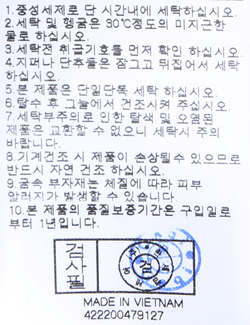 1.중성세제로 단 시간내에 세탁하십시오.
2.세탁 및 헹굼은 30℃정도의 미지근한
물로 하십시오.
3.세탁전 취급기호를 먼저 확인 하십시오.
4.지퍼나 단추들은 잠그고 뒤집어서 세탁
하십시오.
5.본 제품은 단일단독 세탁 하십시오.
6.탈수 후 그늘에서 건조시켜 주십시오.
7.세탁부주의로 인한 탈색 및 오염된
제품은 교환할 수 없으니 세탁시 주의
바랍니다.
8.기계건조 시 제품이 손상될수 있으므로
반드시 자연 건조 하십시오.
9.금속 부자재는 체질에 따라 피부
알러지가 발생할 수 있습니다.
10.본 제품의 품질보증기간은 구입일로
부터 1년입니다.
검사필
검
MADE IN VIETNAM
422200479127